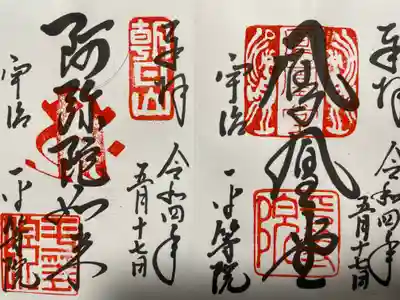 奉拝
令和四年
五月十七日
鳳凰堂
宇治
平等院
奉拝
令和四年
五月十七日
朝日山
阿弥陀如来
宇治
平等院